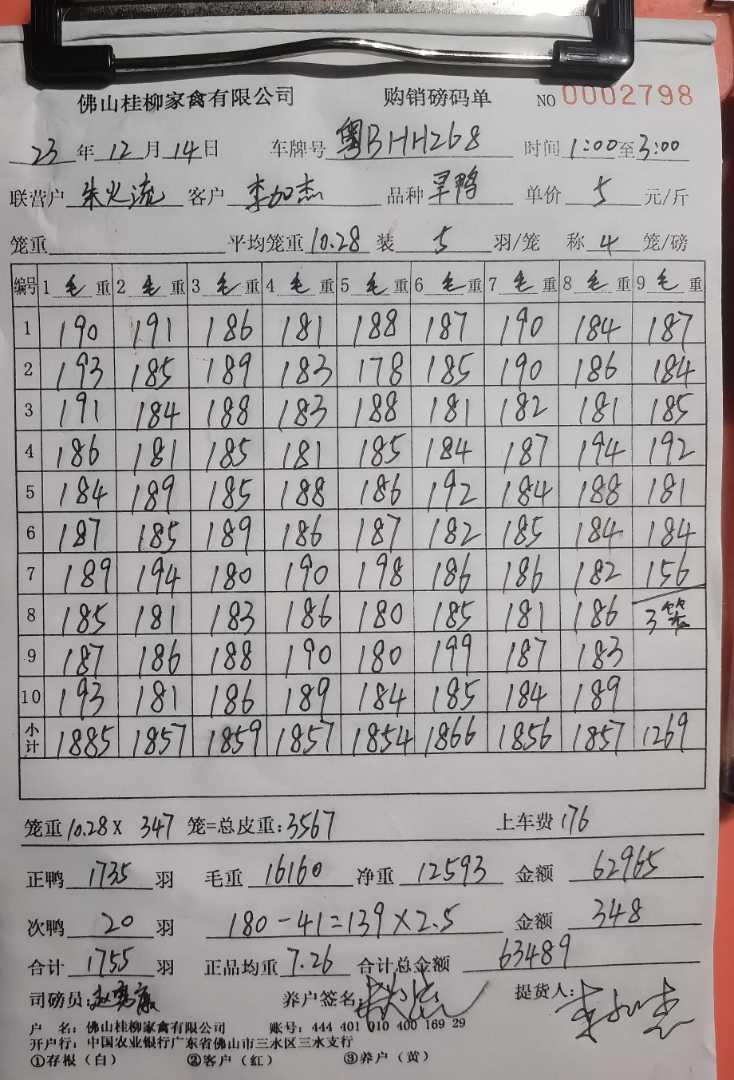 佛山桂柳家禽有限公司 购销磅码单 NO 0002798
23 年 12 月 14 日 车牌号 粤BHH268 时间 1:00 至 3:00
联营户 朱火流 客户 李如杰 品种 旱鸭 单价 5 元/斤
笼重 平均笼重 10.28 装 5 羽/笼 称 4 笼/磅
编号 1 毛 重 2 毛 重 3 毛 重 4 毛 重 5 毛 重 6 毛 重 7 毛 重 8 毛 重 9 毛 重
1 190 191 186 181 188 187 190 184 187
2 193 185 189 183 178 185 190 186 184
3 191 184 188 183 188 181 182 181 185
4 186 181 185 181 185 184 187 194 192
5 184 189 185 188 186 192 184 188 181
6 187 185 189 186 187 182 185 184 184
7 189 194 180 190 198 186 186 182 156
8 185 181 183 186 180 185 181 186 3笼
9 187 186 188 190 180 199 187 183
10 193 181 186 189 184 185 184 189
小计 1885 1857 1859 1857 1854 1866 1856 1857 1269
笼重 10.28 X 347 笼=总皮重: 3567 上车费 176
正鸭 1735 羽 毛重 16160 净重 12593 金额 62965
次鸭 20 羽 180-41=139×2.5 金额 348
合计 1755 羽 正品均重 7.26 合计总金额 63489
司磅员: 养户签名: 朱火流 提货人: 李如杰
户 名: 佛山桂柳家禽有限公司 账号: 444 401 010 400 169 29
开户行: 中国农业银行广东省佛山市三水区三水支行
①存根(白) ②客户(红) ③养户(黄)